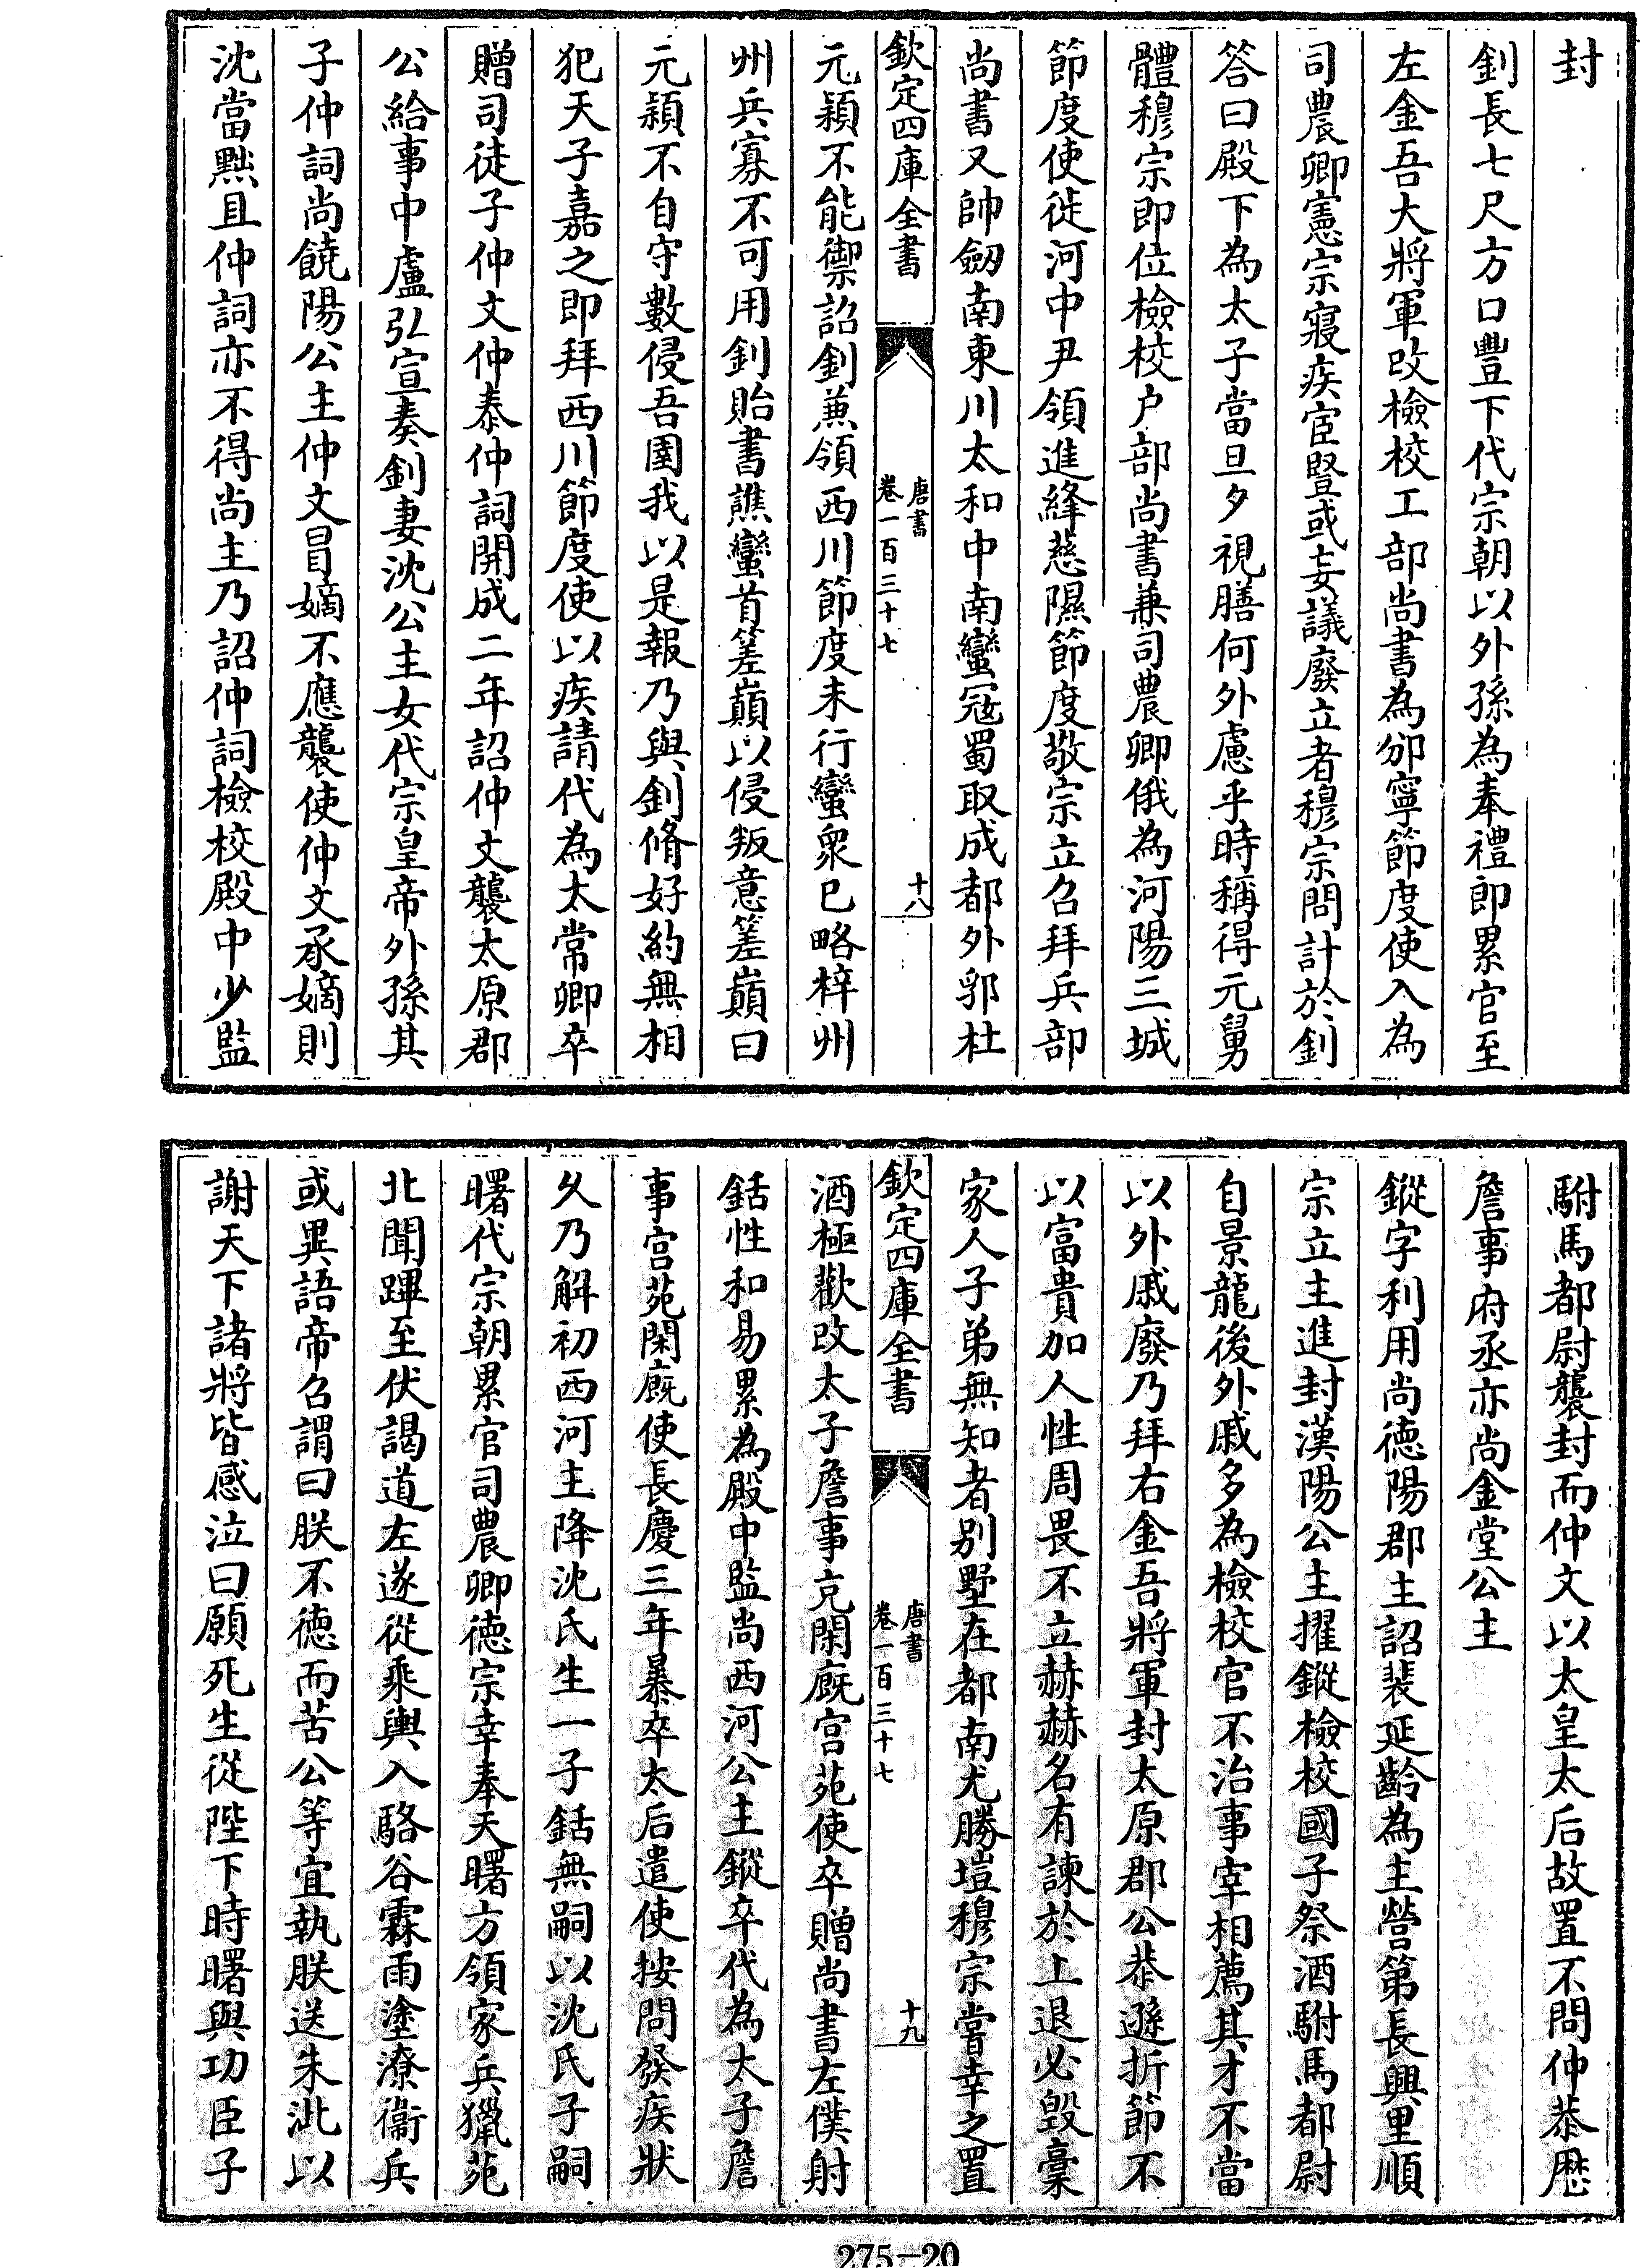 封
釗長七尺方口豐下代宗朝以外孫為奉禮郎累官至
左金吾大將軍改檢校工部尚書為邠寧節度使入為
司農卿憲宗寢疾宦豎或妄議廢立者穆宗問計於釗
答曰殿下為太子當旦夕視膳何外慮乎時稱得元舅
體穆宗即位檢校户部尚書兼司農卿俄為河陽三城
節度使徙河中尹領進絳慈隰節度敬宗立召拜兵部
尚書又帥劒南東川太和中南蠻冦蜀取成都外郛杜
欽定四庫全書
唐書
卷一百三十七
十八
元穎不能禦詔釗兼領西川節度未行蠻衆已略梓州
州兵寡不可用釗貽書譙蠻首箠巔以侵叛意箠巔曰
元穎不自守數侵吾圉我以是報乃與釗脩好約無相
犯天子嘉之即拜西川節度使以疾請代為太常卿卒
贈司徒子仲文仲泰仲詞開成二年詔仲文襲太原郡
公給事中盧弘宣奏釗妻沈公主女代宗皇帝外孫其
子仲詞尚饒陽公主仲文冒嫡不應襲使仲文承嫡則
沈當黜且仲詞亦不得尚主乃詔仲詞檢校殿中少監
駙馬都尉襲封而仲文以太皇太后故置不問仲恭歷
詹事府丞亦尚金堂公主
鏦字利用尚德陽郡主詔裴延齡為主營第長興里順
宗立主進封漢陽公主擢鏦檢校國子祭酒駙馬都尉
自景龍後外戚多為檢校官不治事宰相薦其才不當
以外戚廢乃拜右金吾將軍封太原郡公恭遜折節不
以富貴加人性周畏不立赫赫名有諫於上退必毀稾
家人子弟無知者別墅在都南尤勝塏穆宗嘗幸之置
欽定四庫全書
唐書
卷一百三十七
十九
酒極歡改太子詹事充閑廐宮苑使卒贈尚書左僕射
銛性和易累為殿中監尚西河公主鏦卒代為太子詹
事宮苑閑廐使長慶三年暴卒太后遣使按問發疾狀
乆乃解初西河主降沈氏生一子銛無嗣以沈氏子嗣
曙代宗朝累官司農卿德宗幸奉天曙方領家兵獵苑
北聞蹕至伏謁道左遂從乘輿入駱谷霖雨塗潦衞兵
或異語帝召謂曰朕不德而苦公等宜執朕送朱泚以
謝天下諸將皆感泣曰願死生從陛下時曙與功臣子
275-20